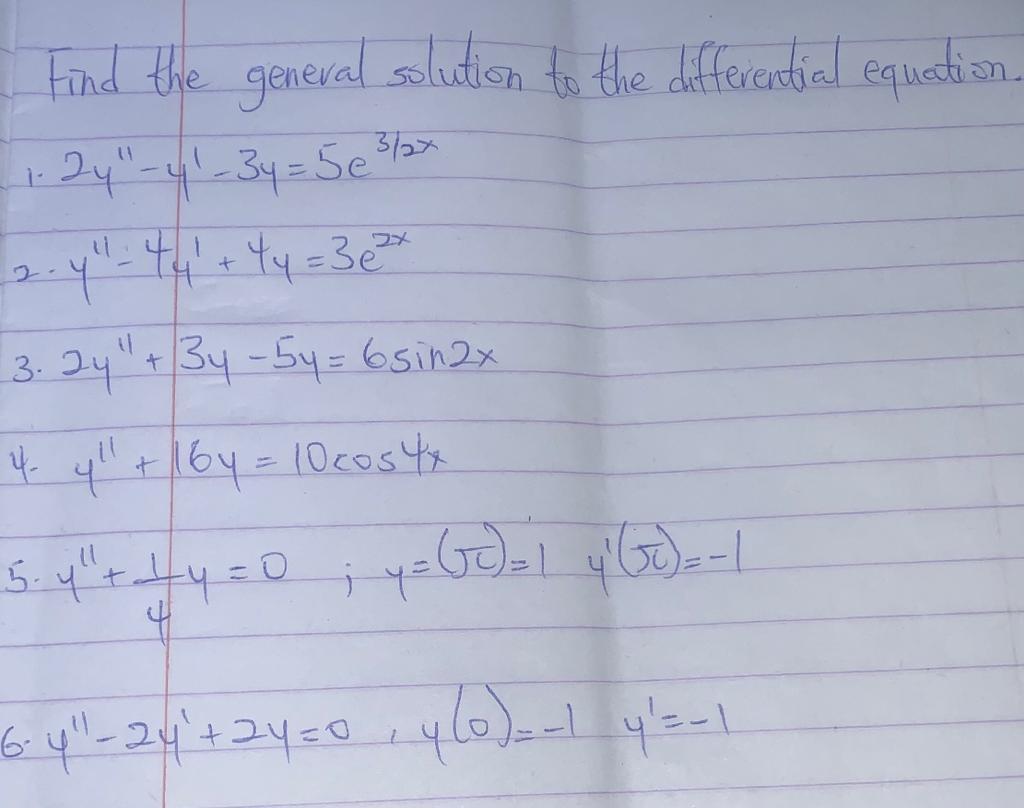 Find the general solution to the differential equation.
1. 2y" - y' - 3y = 5e^3/2x
2. y" - 4y' + 4y = 3e^2x
3. 2y" + 3y - 5y = 6sin2x
4. y" + 16y = 10cos4x
5. y" + 1/4 y = 0 ; y = (π) = 1 y'(π) = -1
6. y" - 2y' + 2y = 0 , y(0) = -1 y' = -1